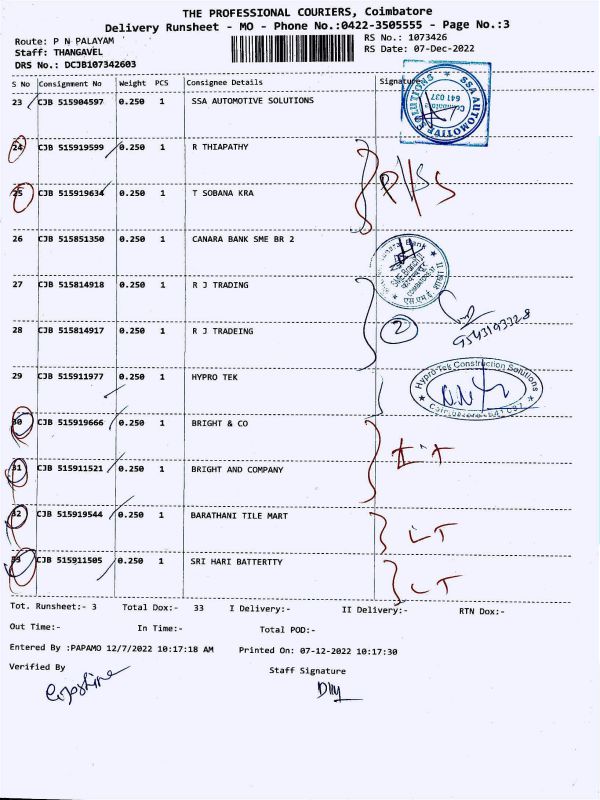 THE PROFESSIONAL COURIERS, Coimbatore
Delivery Runsheet - MO - Phone No.:0422-3505555 - Page No.:3
Route: P N PALAYAM
Staff: THANGAVEL
DRS No.: DCJB107342603
RS No.: 1073426
RS Date: 07-Dec-2022
S No Consignment No Weight PCS Consignee Details Signature
23 CJB 515904597 0.250 1 SSA AUTOMOTIVE SOLUTIONS
SSA AUTOMOTIVE SOLUTIONS
Coimbatore
641 037
24 CJB 515919599 0.250 1 R THIAPATHY
P/SS
25 CJB 515919634 0.250 1 T SOBANA KRA
26 CJB 515851350 0.250 1 CANARA BANK SME BR 2
Canara Bank
27 CJB 515814918 0.250 1 R J TRADING
2
9543193328
28 CJB 515814917 0.250 1 R J TRADEING
29 CJB 515911977 0.250 1 HYPRO TEK
Hypro-Tek Construction Solutions
Coimbatore-641 037
30 CJB 515919666 0.250 1 BRIGHT & CO
31 CJB 515911521 0.250 1 BRIGHT AND COMPANY
32 CJB 515919544 0.250 1 BARATHANI TILE MART
LT
33 CJB 515911505 0.250 1 SRI HARI BATTERTTY
LT
Tot. Runsheet:- 3 Total Dox:- 33 I Delivery:- II Delivery:- RTN Dox:-
Out Time:- In Time:- Total POD:-
Entered By :PAPAMO 12/7/2022 10:17:18 AM Printed On: 07-12-2022 10:17:30
Verified By Staff Signature